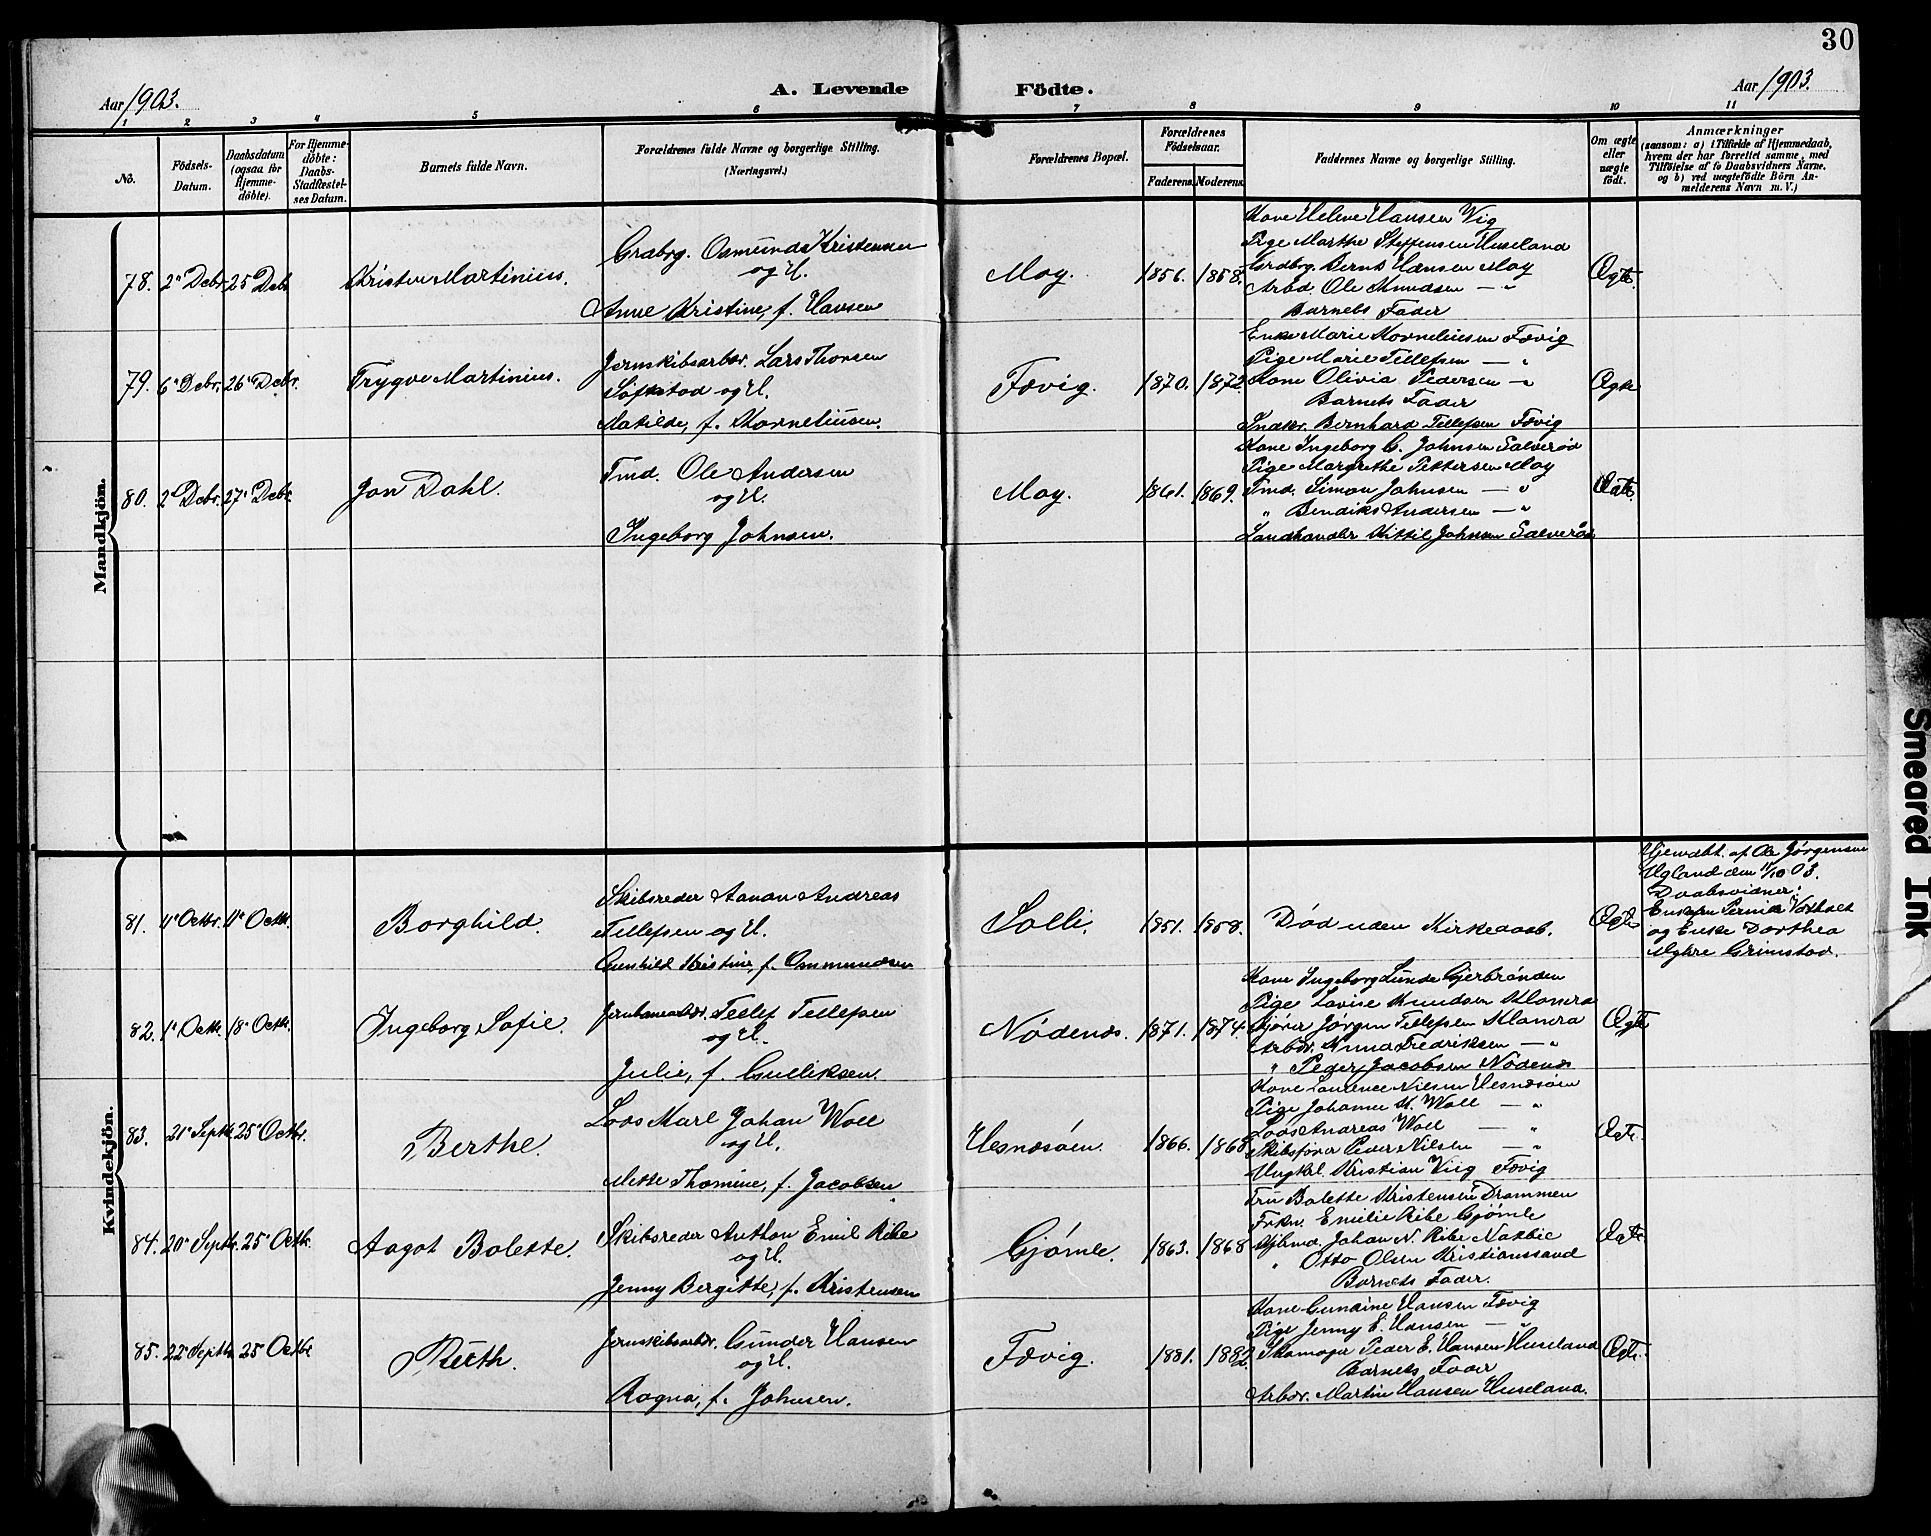 30
Aar 1903.
A. Levende Födte.
Aar 1903.
1 2 3 4 5 6 7 8 9 10 11
No.
Födsels-
Datum.
Daabsdatum
(ogsaa for
Hjemme-
döbte).
For Hjemme-
döbte:
Daabs-
Stadfæstel-
ses Datum.
Barnets fulde Navn.
Forældrenes fulde Navne og borgerlige Stilling.
(Næringsvei.)
Forældrenes Bopæl.
Forældrenes
Födselsaar.
Faderens. Moderens.
Faddernes Navne og borgerlige Stilling.
Om ægte
eller
uægte
födt.
Anmærkninger
(saasom: a) i Tilfælde af Hjemmedaab,
hvem der har forrettet samme, med
Tilföielse af to Daabsvidners Navne.
og b) ved uægtefödte Börn An-
melderens Navn m. V.)
Mandkjön.
78. 2 Debr. 25 Debr
Kristen Martinius.
Grdbrg. Osmund Kristensen
og H.
Anne Kristine, f. Hansen
Moy.
1856. 1858.
Kone Helene Hansen Vig
Pige Marthe Steffensen Huseland
Grdbrg. Bernt Hansen Moy
Arbd. Ole Knudsen — "
Barnets Fader
Ægte.
79. 6 Debr. 26 Debr.
Trygve Martinius.
Jernskibsarbdr. Lars Thorsen
Löfstad og H.
Matilde, f. Korneliusen.
Fævig.
1870. 1872.
Enke Marie Korneliusen Fævig
Pige Marie Tellefsen — "
Kone Olivia Pedersen — "
Barnets Fader
Indkr. Bernhard Tellefsen Fævig
Ægte
80. 2 Debr. 27 Debr.
Jon Dahl.
Tmd. Ole Andersen
og H.
Ingeborg Johnsen.
Moy.
1861. 1869.
Kone Ingeborg C. Johnsen Salveröd
Pige Margrethe Pettersen Moy
Tmd. Simon Johnsen — "
" Bendiks Andersen — "
Landhandler Kittil Johnsen Salveröd
Ægte.
Kvindekjön.
81. 11 Octbr. 11 Octbr.
Borghild.
Skibsreder Aanon Andreas
Tellefsen og H.
Gunhild Kristine, f. Ommundsen
Solli.
1851. 1858.
Död uden Kirkedaab.
Ægte
Hjemdbt. af Ole Jörgensen
Ugland den 11/10 03.
Daabsvidner:
og Enke Dorthea
Myhre Grimstad.
82. 1 Octbr. 18 Octbr.
Ingeborg Sofie.
Jernbanearbdr. Tellef Tellefsen
og H.
Julie, f. Gulliksen.
Nödenæs.
1871. 1874.
Kone Ingeborg Lunde Gjerbrönden
Pige Lovise Knudsen
Kjörer Jörgen Tellefsen
Arbdr. Knud Fredriksen — "
" Peder Jacobsen Nödenæs
Ægte
83. 21 Septbr. 25 Octbr.
Berthe.
Lods Karl Johan Woll
og H.
Mette Thomine, f. Jacobsen
Hesnæsöen.
1866. 1868
Kone Laurence Nilsen Hesnæsöen
Pige Johanne K. Woll — "
Lods Andreas Woll — "
Skibsförer Peder Nilsen — "
Ungkl. Kristian Viig Fævig
Ægte.
84. 20 Septbr. 25 Octbr.
Aagot Bolette.
Skibsreder Anthon Emil Ribe
og H.
Jenny Bergitte, f. Kristensen
Gjömle.
1863. 1868
Fru Bolette Kristensen Drammen
Frkn. Emilie Ribe Gjömle
Sjömd. Johan N. Ribe Natvig
" Otto Olsen Kristianssand
Barnets Fader.
Ægte
85. 22 Septbr. 25 Octbr
Ruth.
Jernskibsarbdr. Gunder Hansen
og H.
Ragna, f. Johnsen.
Fævig.
1881. 1882
Kone Gundine Hansen Fævig
Pige Jenny E. Hansen — "
Skomager Peder E. Hansen Huseland
Barnets Fader
Arbdr. Martin Hansen Huseland.
Ægte.
Smeared Ink